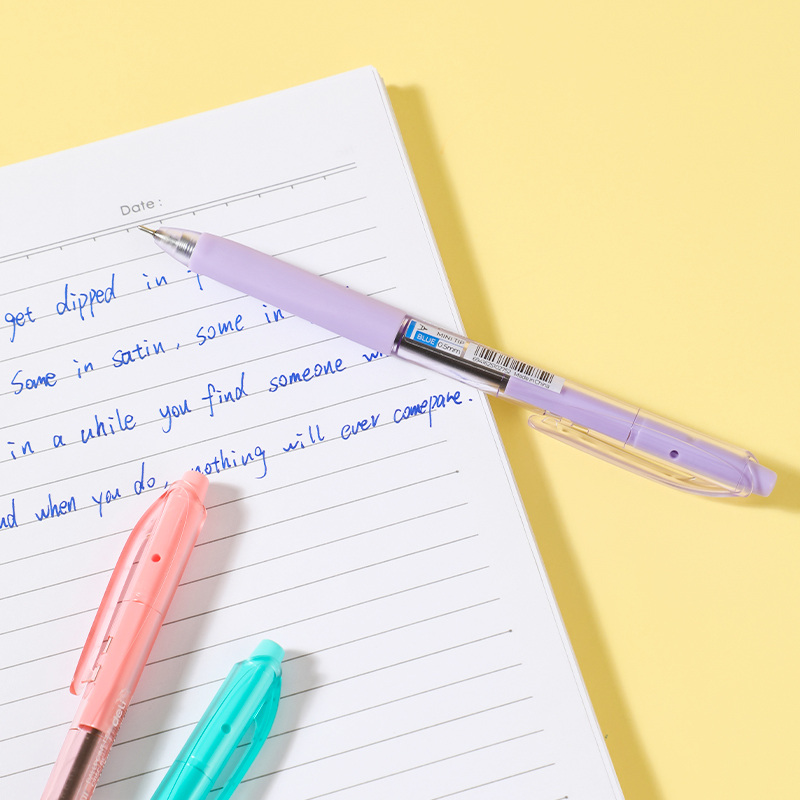 Date:
get dipped in
Some in satin, some in
in a while you find someone
when you do, nothing will ever comepare.
MINI TIP
BLUE 0.5mm
Made in China
deli